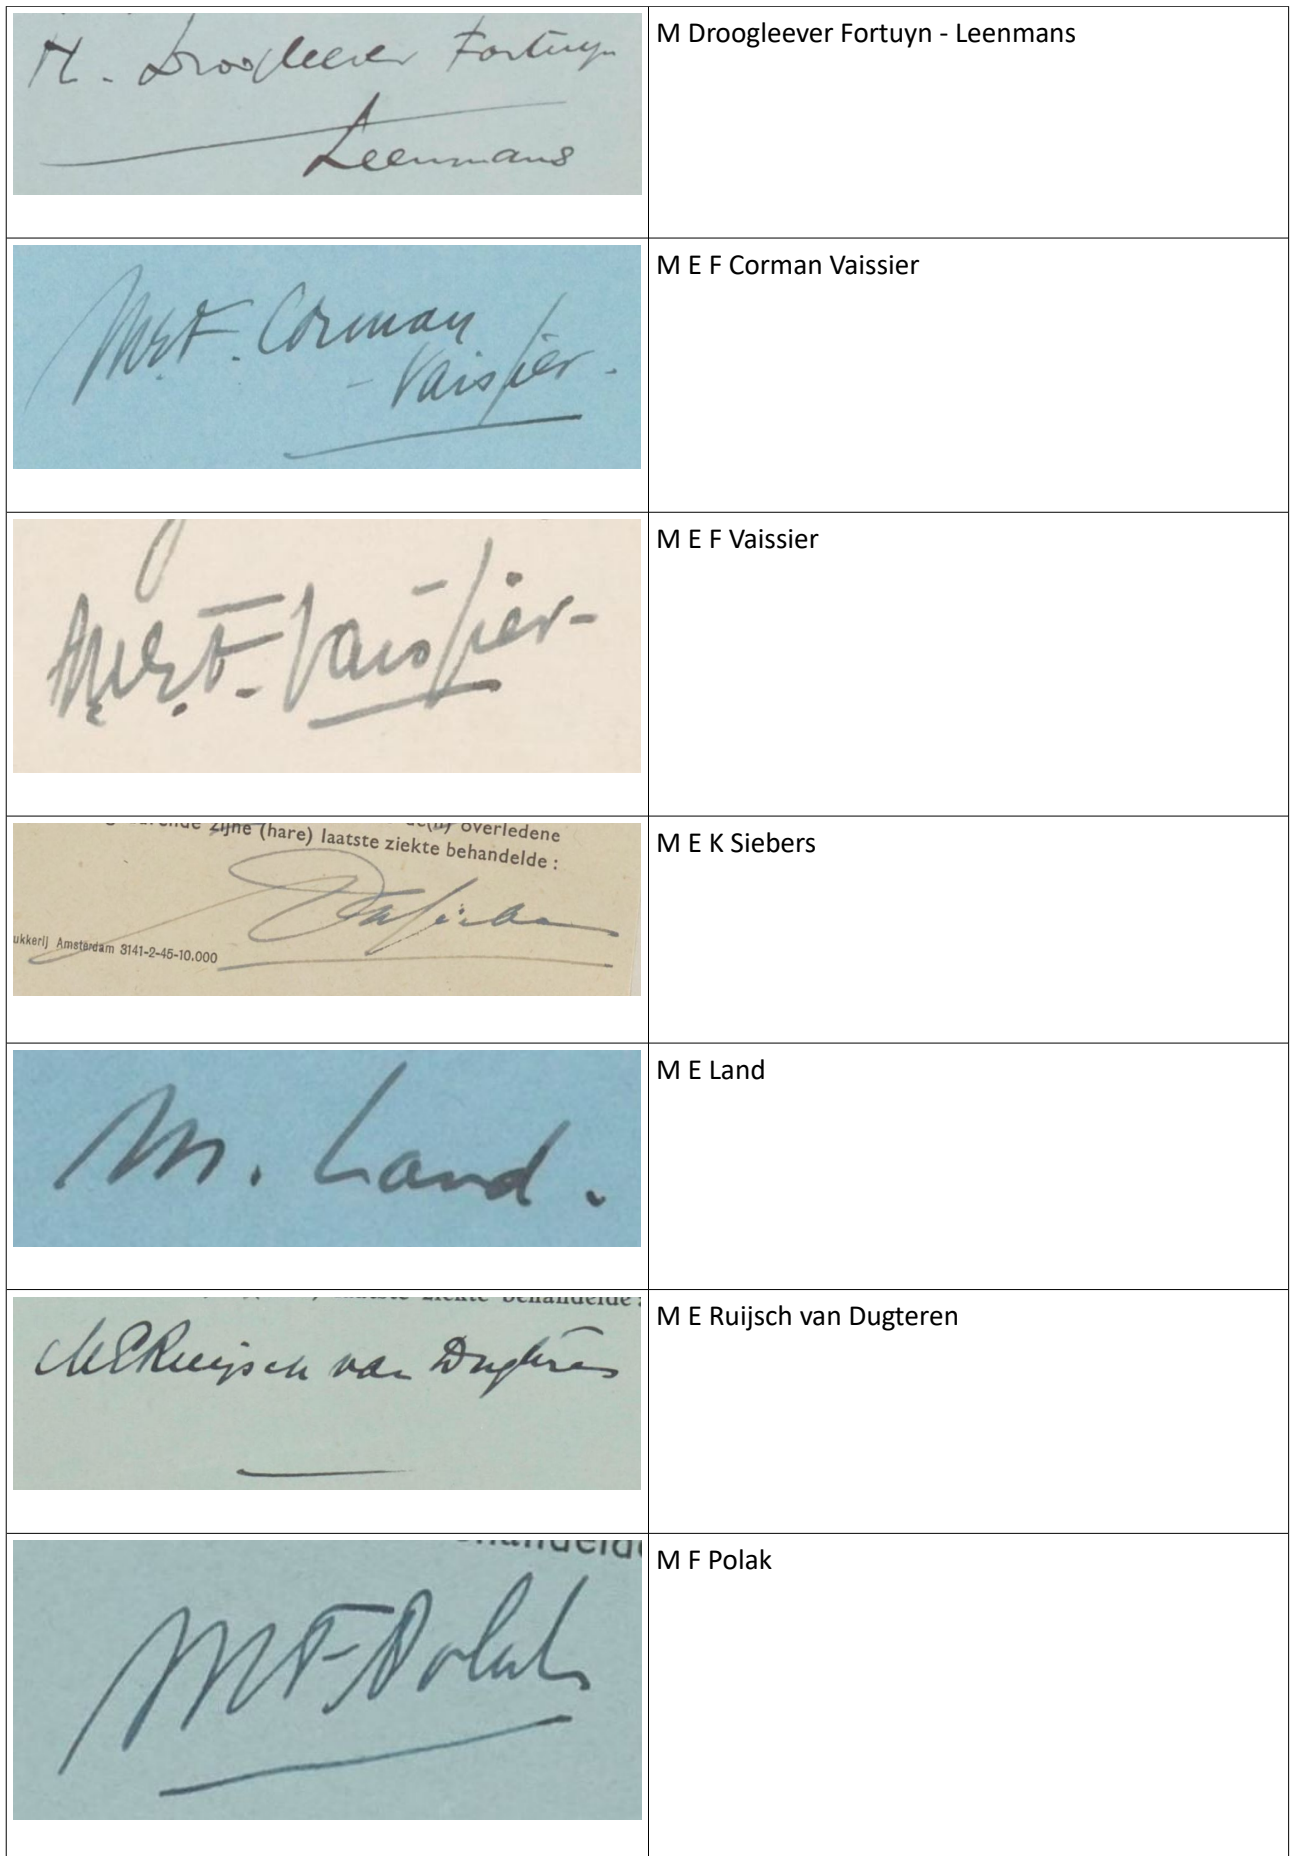 M. Droogleever Fortuyn
Leenmans
M Droogleever Fortuyn - Leenmans
M.E.F. Corman
- Vaissier.
M E F Corman Vaissier
M.E.F. Vaissier-
M E F Vaissier
zijne (hare) laatste ziekte behandelde :
de(n) overledene
ukkerij Amsterdam 3141-2-45-10.000
M E K Siebers
M. Land.
M E Land
ziekte behandelde:
MERuijsch van Dugteren
M E Ruijsch van Dugteren
MFPolak
M F Polak